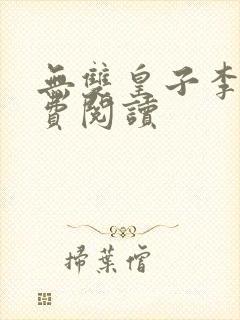 無雙皇子李
費閱讀
掃葉僧